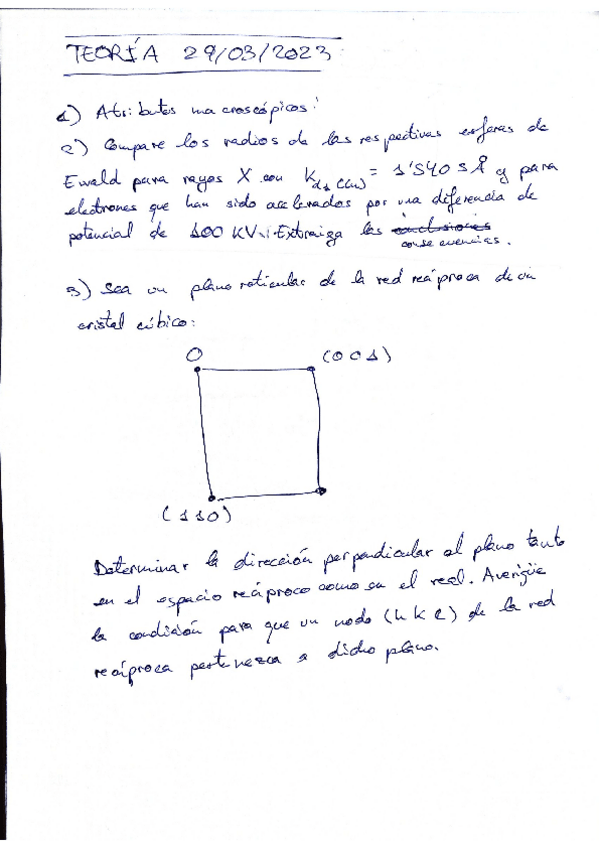 TEORÍA 29/03/2023
1) Atributos macroscópicos.
2) Compare los radios de las respectivas esferas de
Ewald para rayos X con Kα1 (Cu) = 1'5405 Å y para
electrones que han sido acelerados por una diferencia de
potencial de 100 KV. Extraiga las conclusiones
consecuencias.
3) Sea un plano reticular de la red recíproca de un
cristal cúbico:
O (001)
(110)
Determinar la dirección perpendicular al plano tanto
en el espacio recíproco como en el real. Averigüe
la condición para que un nodo (h k l) de la red
recíproca pertenezca a dicho plano.